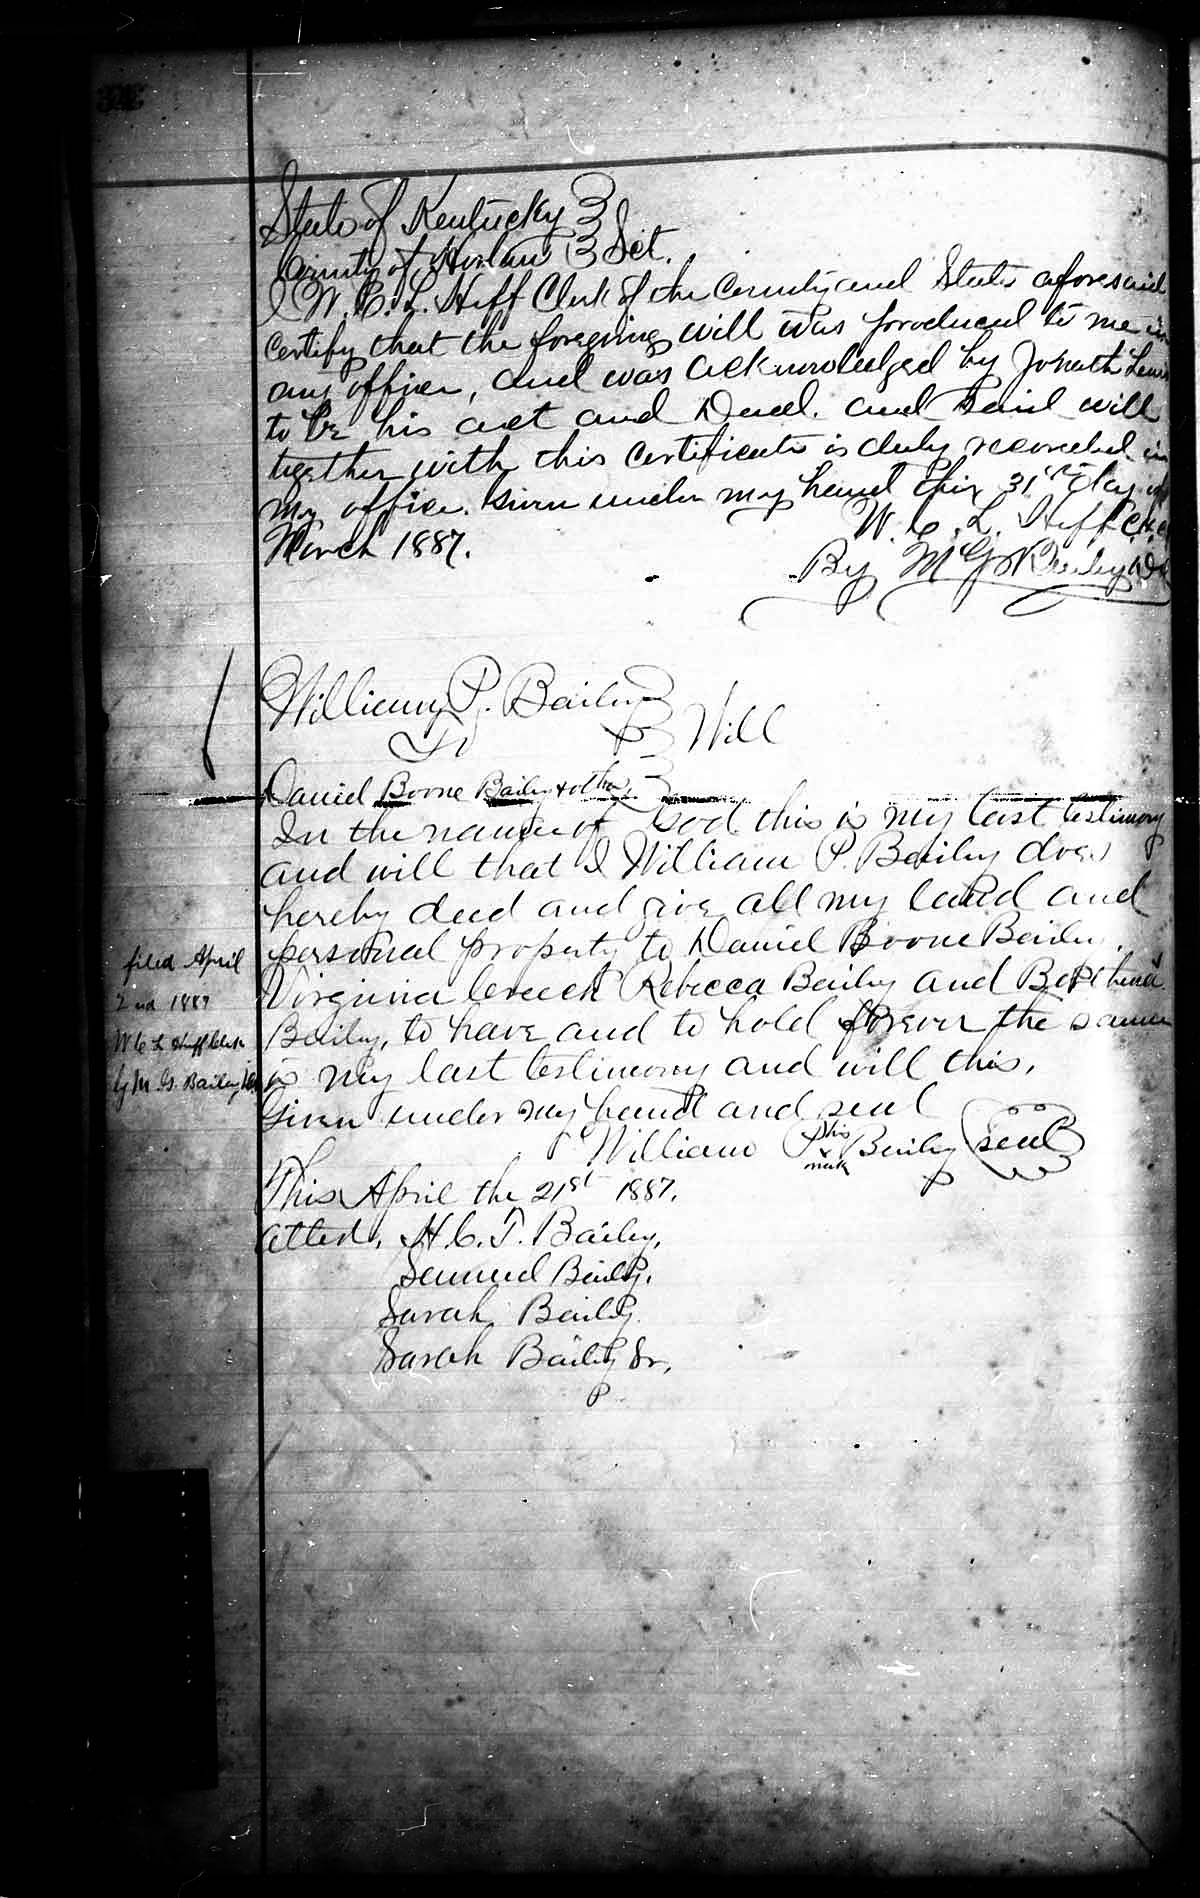 State of Kentucky }
County of Harlan } Sct.
I W. C. L. Huff Clerk of the County and State aforesaid
certify that the foregoing will was produced to me in
my office, and was acknowledged by Jonath Lewis
to be his act and Deed. and said will
together with this certificate is duly recorded in
my office. Given under my hand this 31st day of
March 1887.
W. C. L. Huff Clk
By M G Bailey D.C.
William P. Bailey }
To } Will
Daniel Boone Bailey & others }
In the name of God this is my last testimony
and will that I William P. Bailey does
hereby deed and give all my land and
personal property to Daniel Boone Bailey,
Virginia Creech Rebecca Bailey and
Bailey, to have and to hold forever the same
is my last testimony and will this.
Given under my hand and seal
William P. his x mark Bailey seal
This April the 21st 1887.
Attest, H. C. T. Bailey,
Samuel Bailey.
Sarah Bailey
Sarah Bailey Sr.
filed April
2nd 1887
W C L Huff Clerk
by M. G. Bailey D.C.